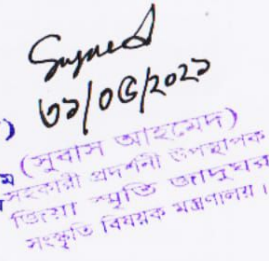 ৩১/০৫/২০২১
(সুবাস আহমেদ)
সহকারী প্রদর্শনী উপস্থাপক
জিয়া স্মৃতি জাদুঘর
সংস্কৃতি বিষয়ক মন্ত্রণালয়।